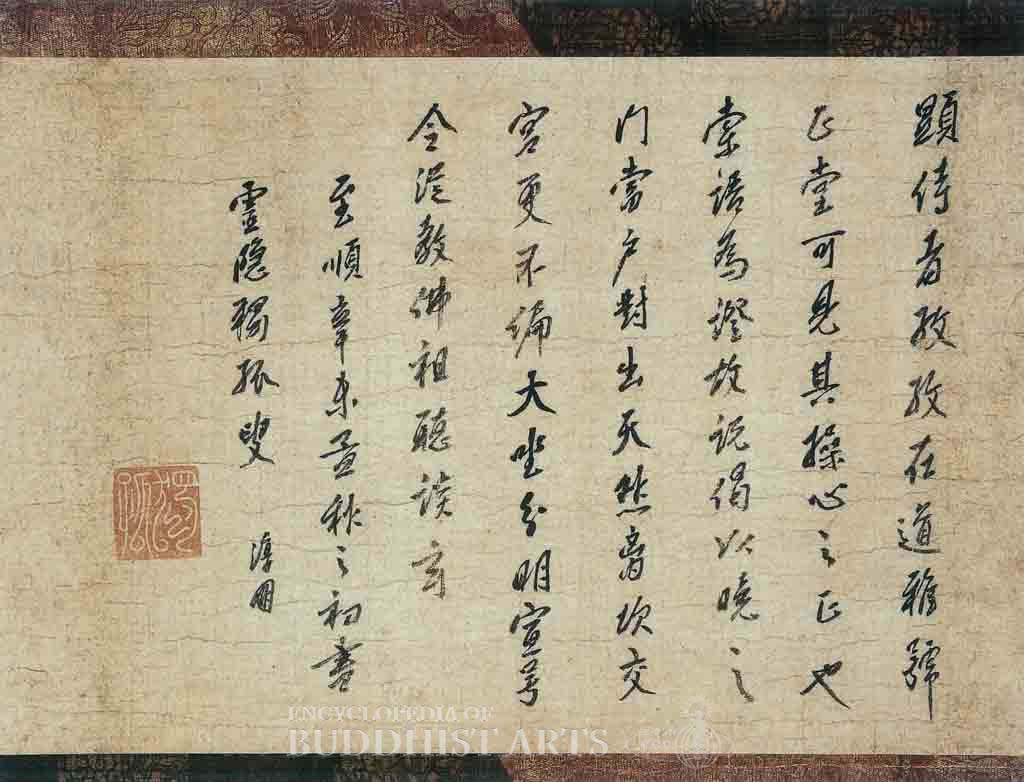 顯侍者孜孜在道雅號
正堂可見其操心之正也
索語為證故說偈以曉之
門當户對出天然离坎交
宮更不偏大坐分明宣号
令從教佛祖聽談玄
至順辛未孟秋之初書
靈隱獨孤叟 淳朋
獨孤
ENCYCLOPEDIA OF
BUDDHIST ARTS